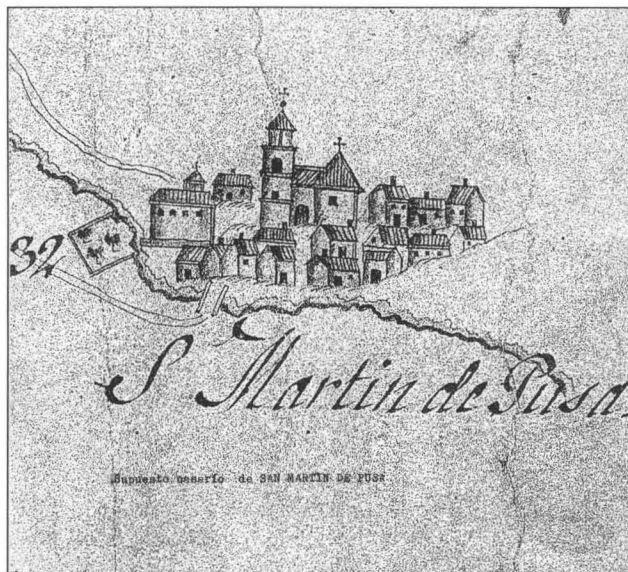 32
S Martin de Pusa.
Supuesto caserío de SAN MARTIN DE PUSA